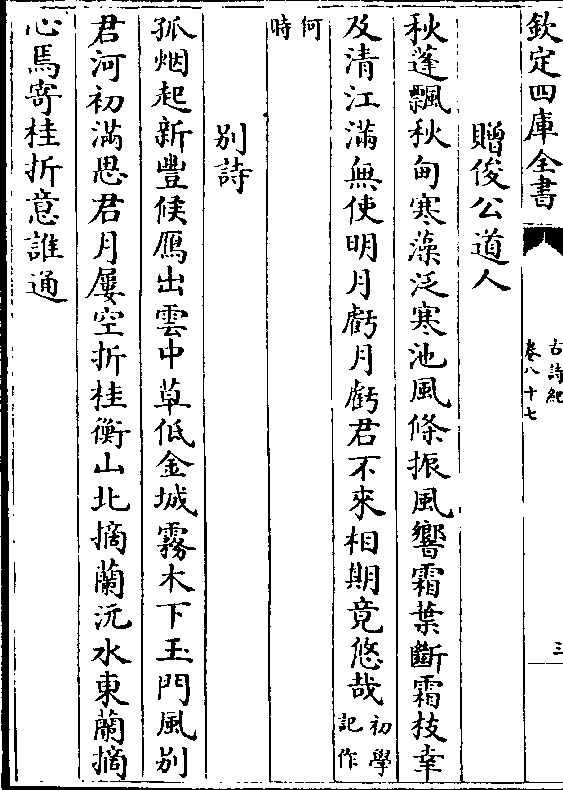 欽定四庫全書
古詩紀
卷八十七
三
贈俊公道人
秋蓬飄秋甸寒藻泛寒池風條振風響霜葉斷霜枝幸
及清江滿無使明月虧月虧君不來相期竟悠哉初學
記作
何
時
別詩
孤烟起新豐候鴈出雲中草低金城霧木下玉門風别
君河初滿思君月屢空折桂衡山北摘蘭沅水東蘭摘
心焉寄桂折意誰通